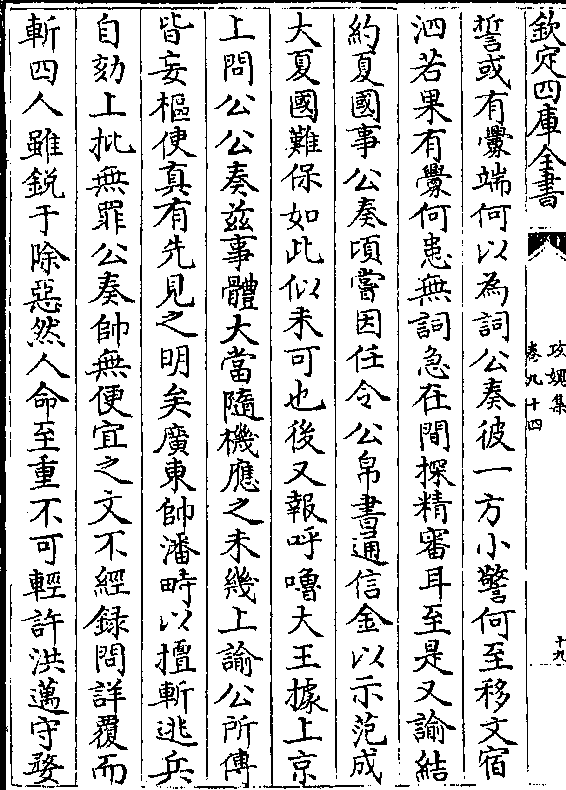 欽定四庫全書
攻媿集
卷九十四
十九
誓或有釁端何以為詞公奏彼一方小警何至移文宿
泗若果有釁何患無詞急在間探精審耳至是又諭結
約夏國事公奏頃嘗因任令公帛書通信金以示范成
大夏國難保如此似未可也後又報呼嚕大王據上京
上問公公奏兹事體大當隨機應之未幾上諭公所傳
皆妄樞使真有先見之明矣廣東帥潘畤以擅斬逃兵
自劾上批無罪公奏帥無便宜之文不經録問詳覆而
斬四人雖鋭于除惡然人命至重不可輕許洪邁守婺